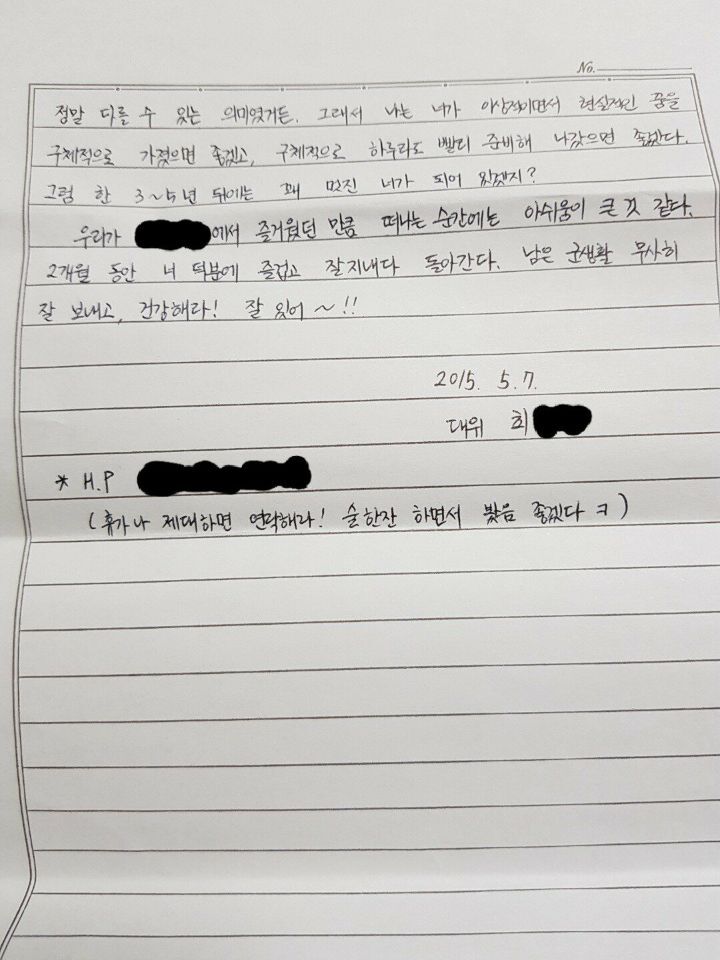 No.
정말 다를 수 있는 의미였거든. 그래서 나는 너가 이상적이면서 현실적인 꿈을
구체적으로 가졌으면 좋겠고, 구체적으로 하루라도 빨리 준비해 나갔으면 좋겠다.
그럼 한 3~5년 뒤에는 꽤 멋진 너가 되어 있겠지?
우리가 에서 즐거웠던 만큼 떠나는 순간에는 아쉬움이 큰 것 같다.
2개월 동안 너 덕분에 즐겁고 잘지내다 돌아간다. 남은 군생활 무사히
잘 보내고, 건강해라! 잘 있어 ~!!
2015. 5. 7.
대위 최
* H.P
(휴가나 제대하면 연락해라! 술한잔 하면서 봤음 좋겠다 ㅋ)